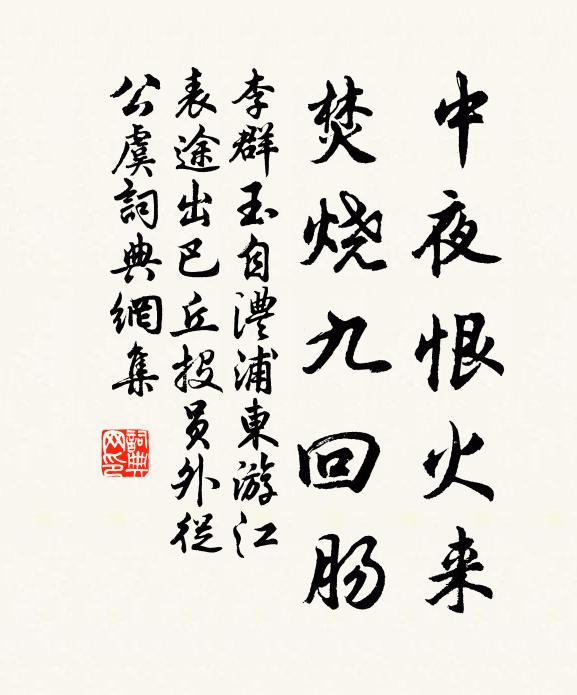 中夜恨火来
焚烧九回肠
李群玉自澧浦東游江
表途出巴丘投员外從
公虞詞典網集
詞典网印